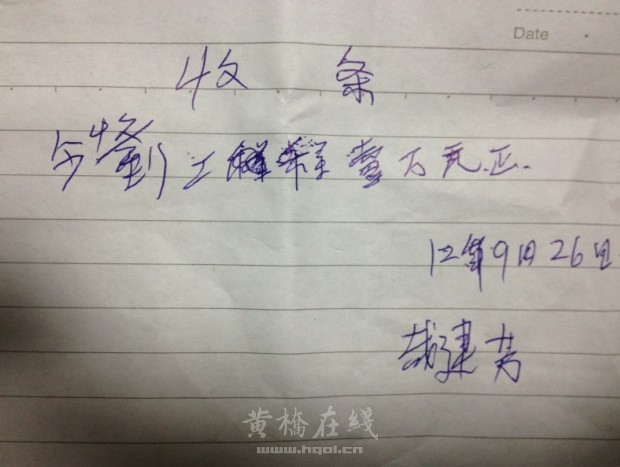 Date
收 条
今收到 工 壹万元正.
12年9月26日
建芳
黄橋在綫
www.hqol.cn